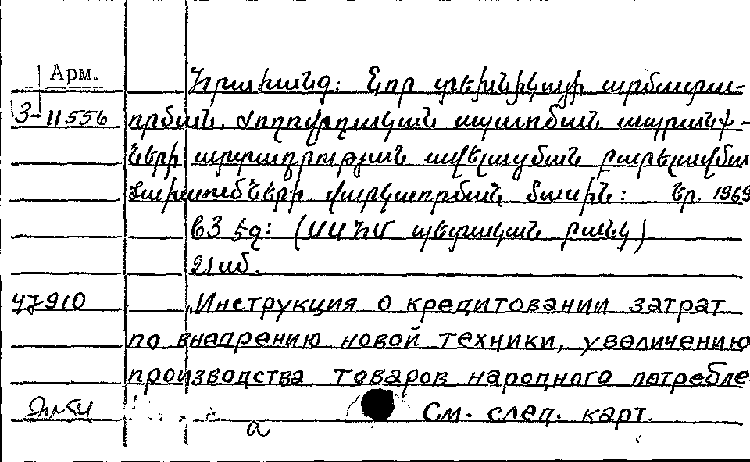 Арм.
Հրահանգ: Նոր տեխնիկայի արմատա-
3-11556 որման, ժողովրդական սպառման ապրանք-
ների արտադրության ավելացման բարելավման
ծախսումների վարկավորման մասին: Եր. 1969
63 էջ: (ՍՍՀՄ պետական բանկ)
21սմ.
47910 Инструкция о кредитовании затрат
по внедрению новой техники, увеличению
производства товаров народного потребле
См. след. карт.
а